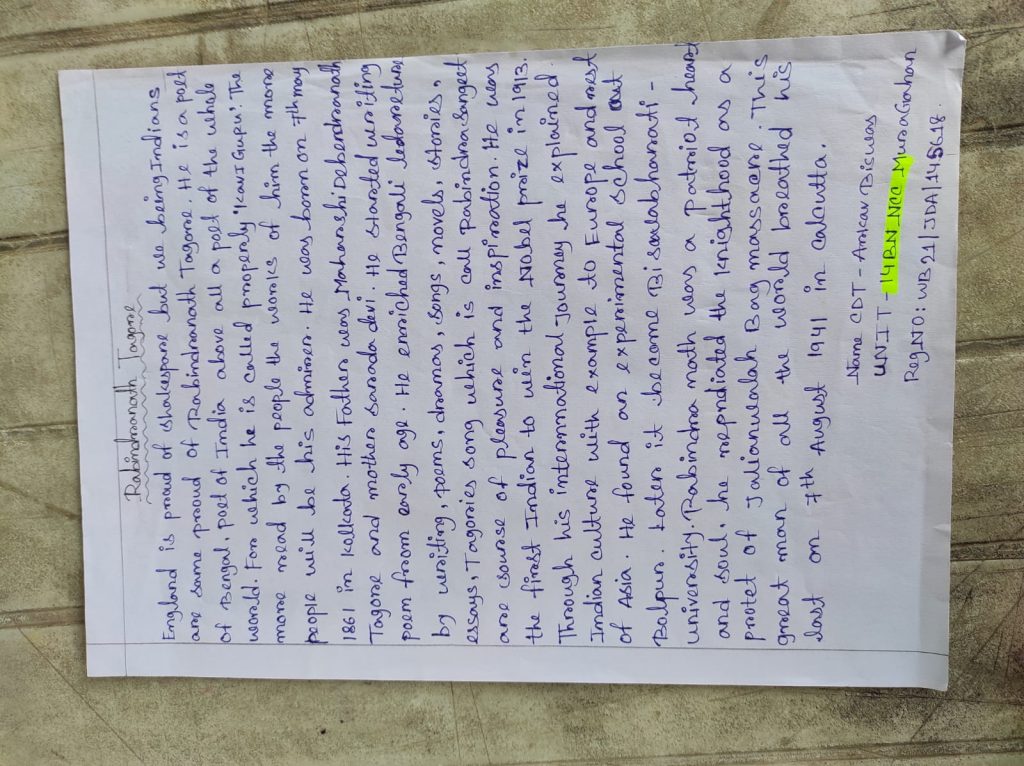 Rabindranath Tagore
England is proud of shakespare but we being Indians
are same proud of Rabindranath Tagore. He is a poet
of Bengal, poet of India above all a poet of the whole
world. For which he is called properly "KaviGuru". The
more read by the people the works of him the more
people will be his admirer. He was born on 7th may
1861 in Kolkata. His Father was Maharshi Debendranath
Tagore and mother sarada devi. He started writing
poem from early age. He enriched Bengali
by writing, poems, dramas, songs, novels, stories,
essays, Tagories song which is call Rabindra Sangeet
are course of pleasure and inspiration. He was
the first Indian to win the Nobel prize in 1913.
Through his international Journey he explained
Indian culture with example to Europe and rest
of Asia. He found an experimental school at
Balpur. Later it become
university. Rabindra nath was a Patriot heart
and soul, he repudiated the knighthood as a
protet of Jalianwalah Bag massacre. This
great man of all the world breathed his
last on 7th August 1941 in Calcutta.
Name CDT - Ankar Biswas
UNIT - 14BN_NCC Muragachha
RegNO: WB21/JDA/145618